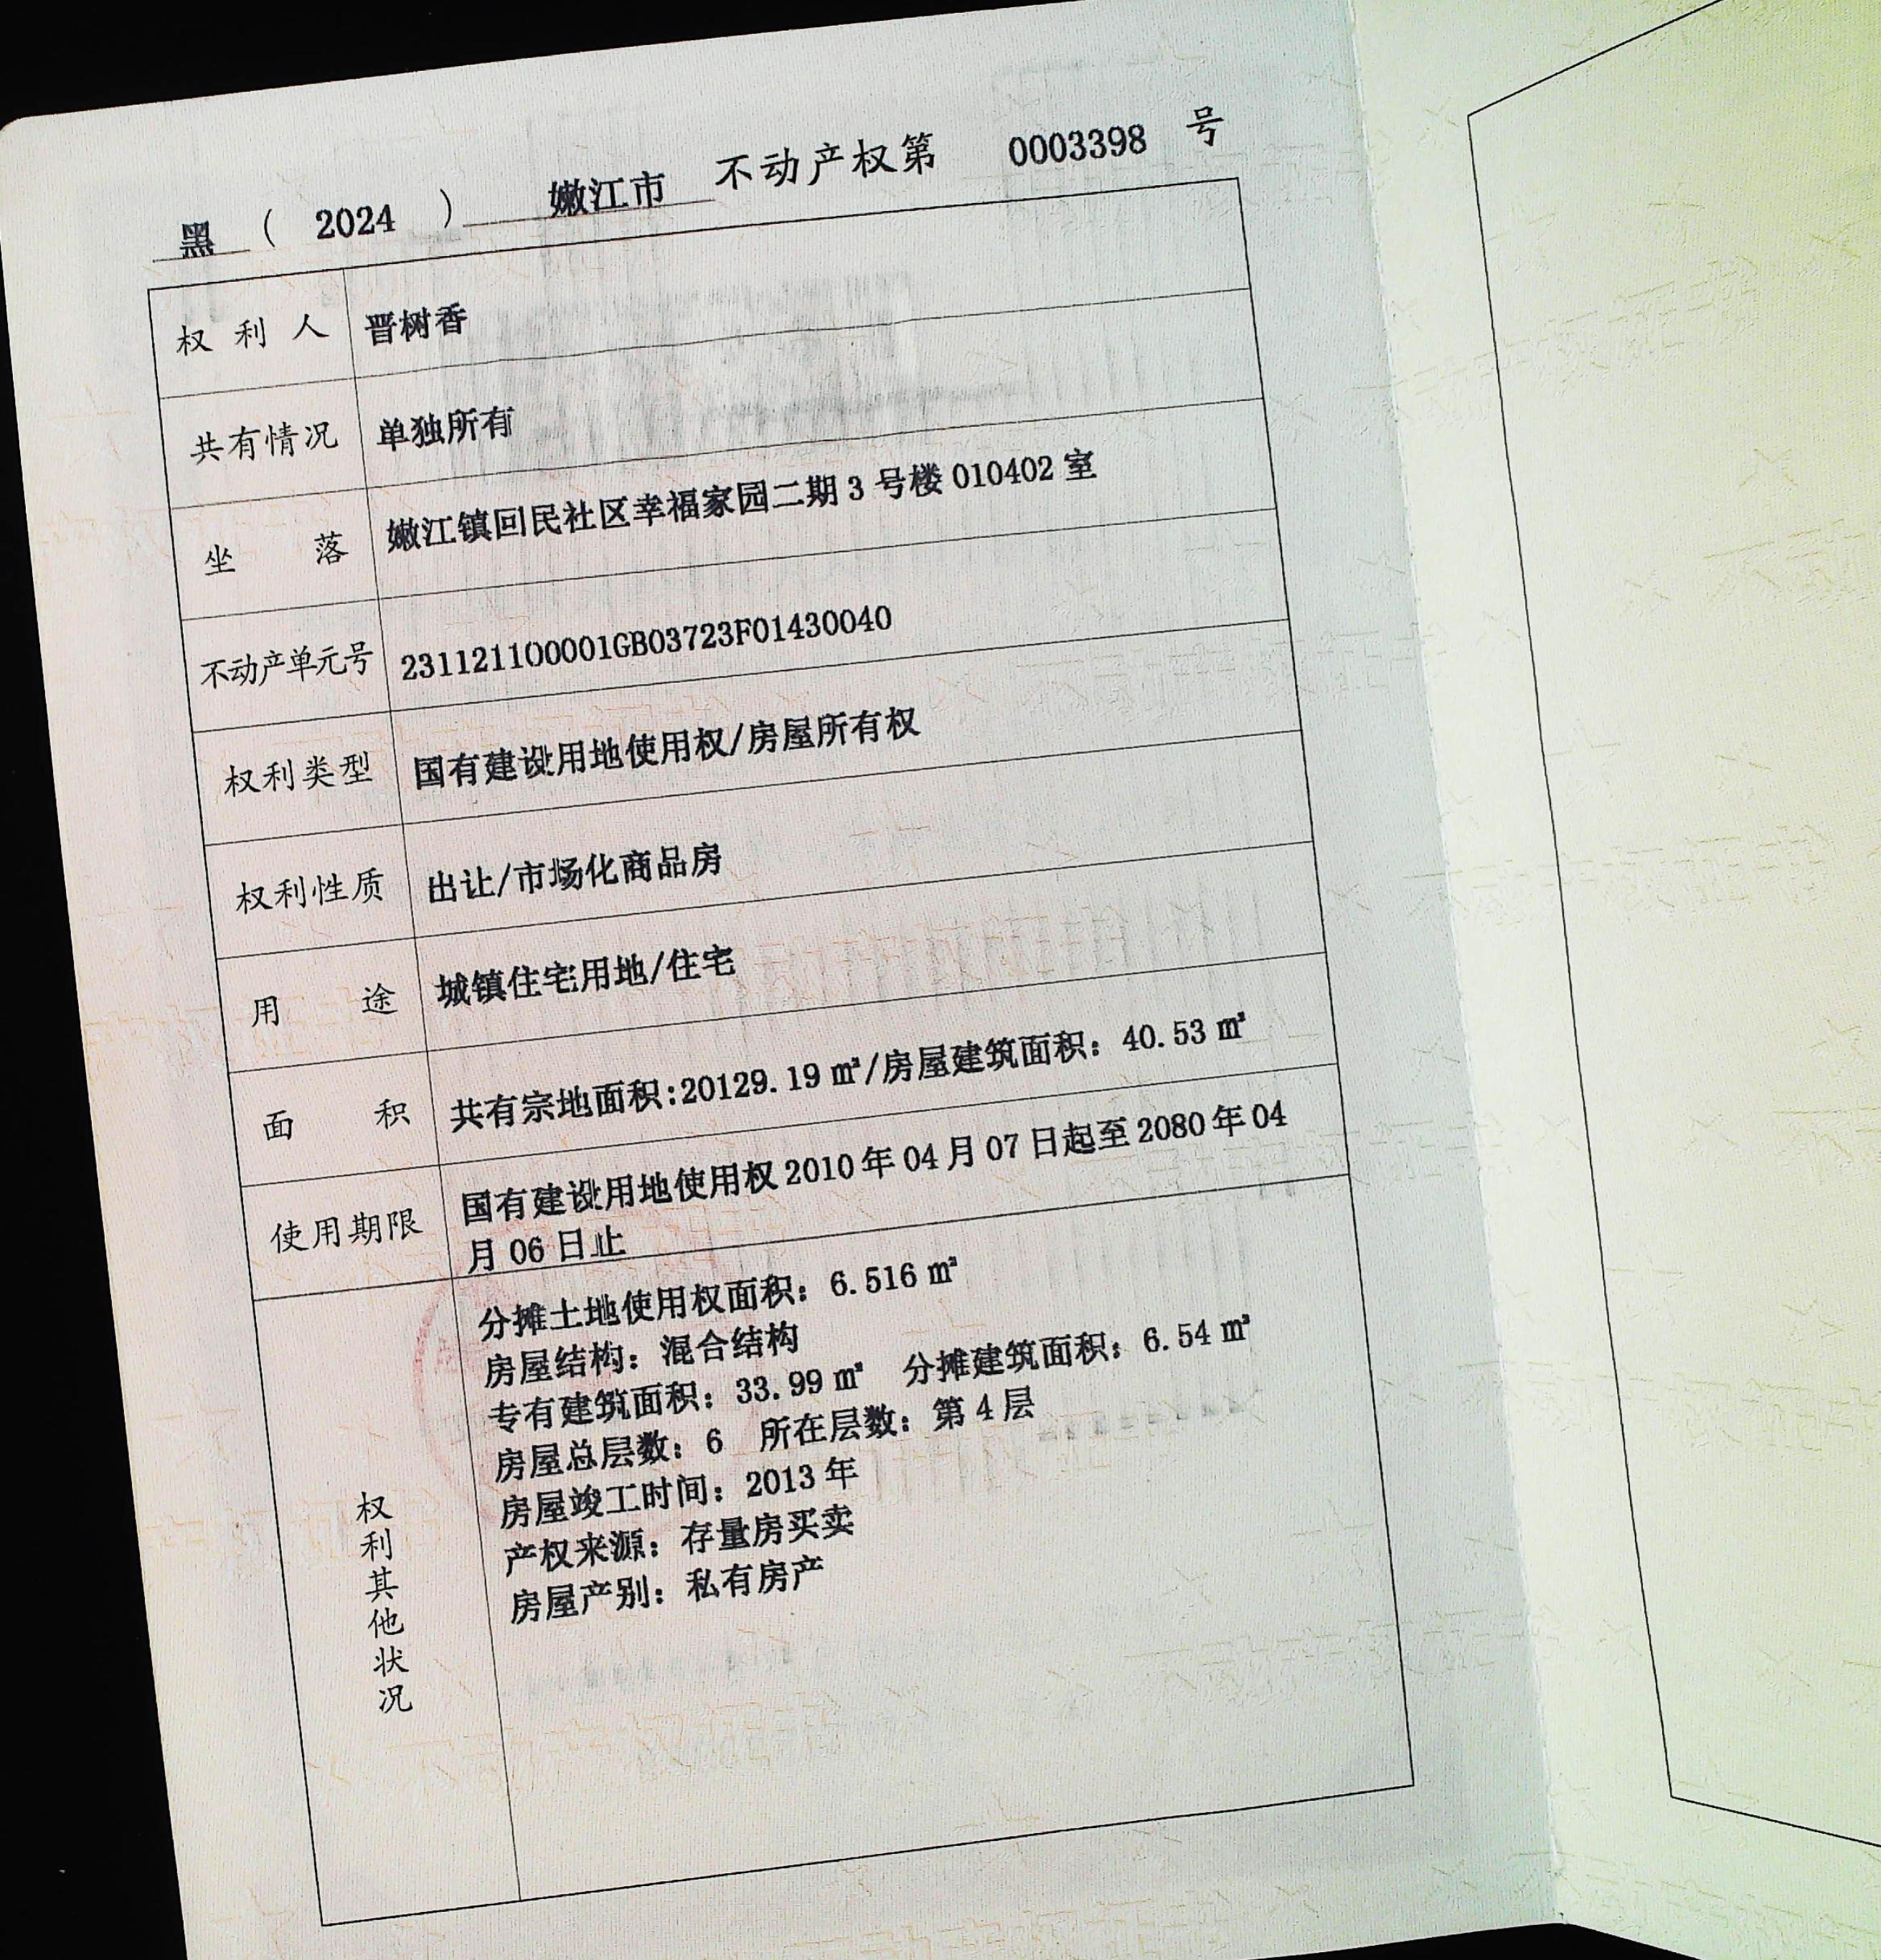 黑 ( 2024 ) 嫩江市 不动产权第 0003398 号
权利人 晋树香
共有情况 单独所有
坐落 嫩江镇回民社区幸福家园二期 3 号楼 010402 室
不动产单元号 231121100001GB03723F01430040
权利类型 国有建设用地使用权/房屋所有权
权利性质 出让/市场化商品房
用途 城镇住宅用地/住宅
面积 共有宗地面积:20129.19 ㎡/房屋建筑面积：40.53 ㎡
使用期限 国有建设用地使用权 2010 年 04 月 07 日起至 2080 年 04
月 06 日止
权利其他状况
分摊土地使用权面积：6.516 ㎡
房屋结构：混合结构
专有建筑面积：33.99 ㎡ 分摊建筑面积：6.54 ㎡
房屋总层数：6 所在层数：第 4 层
房屋竣工时间：2013 年
产权来源：存量房买卖
房屋产别：私有房产